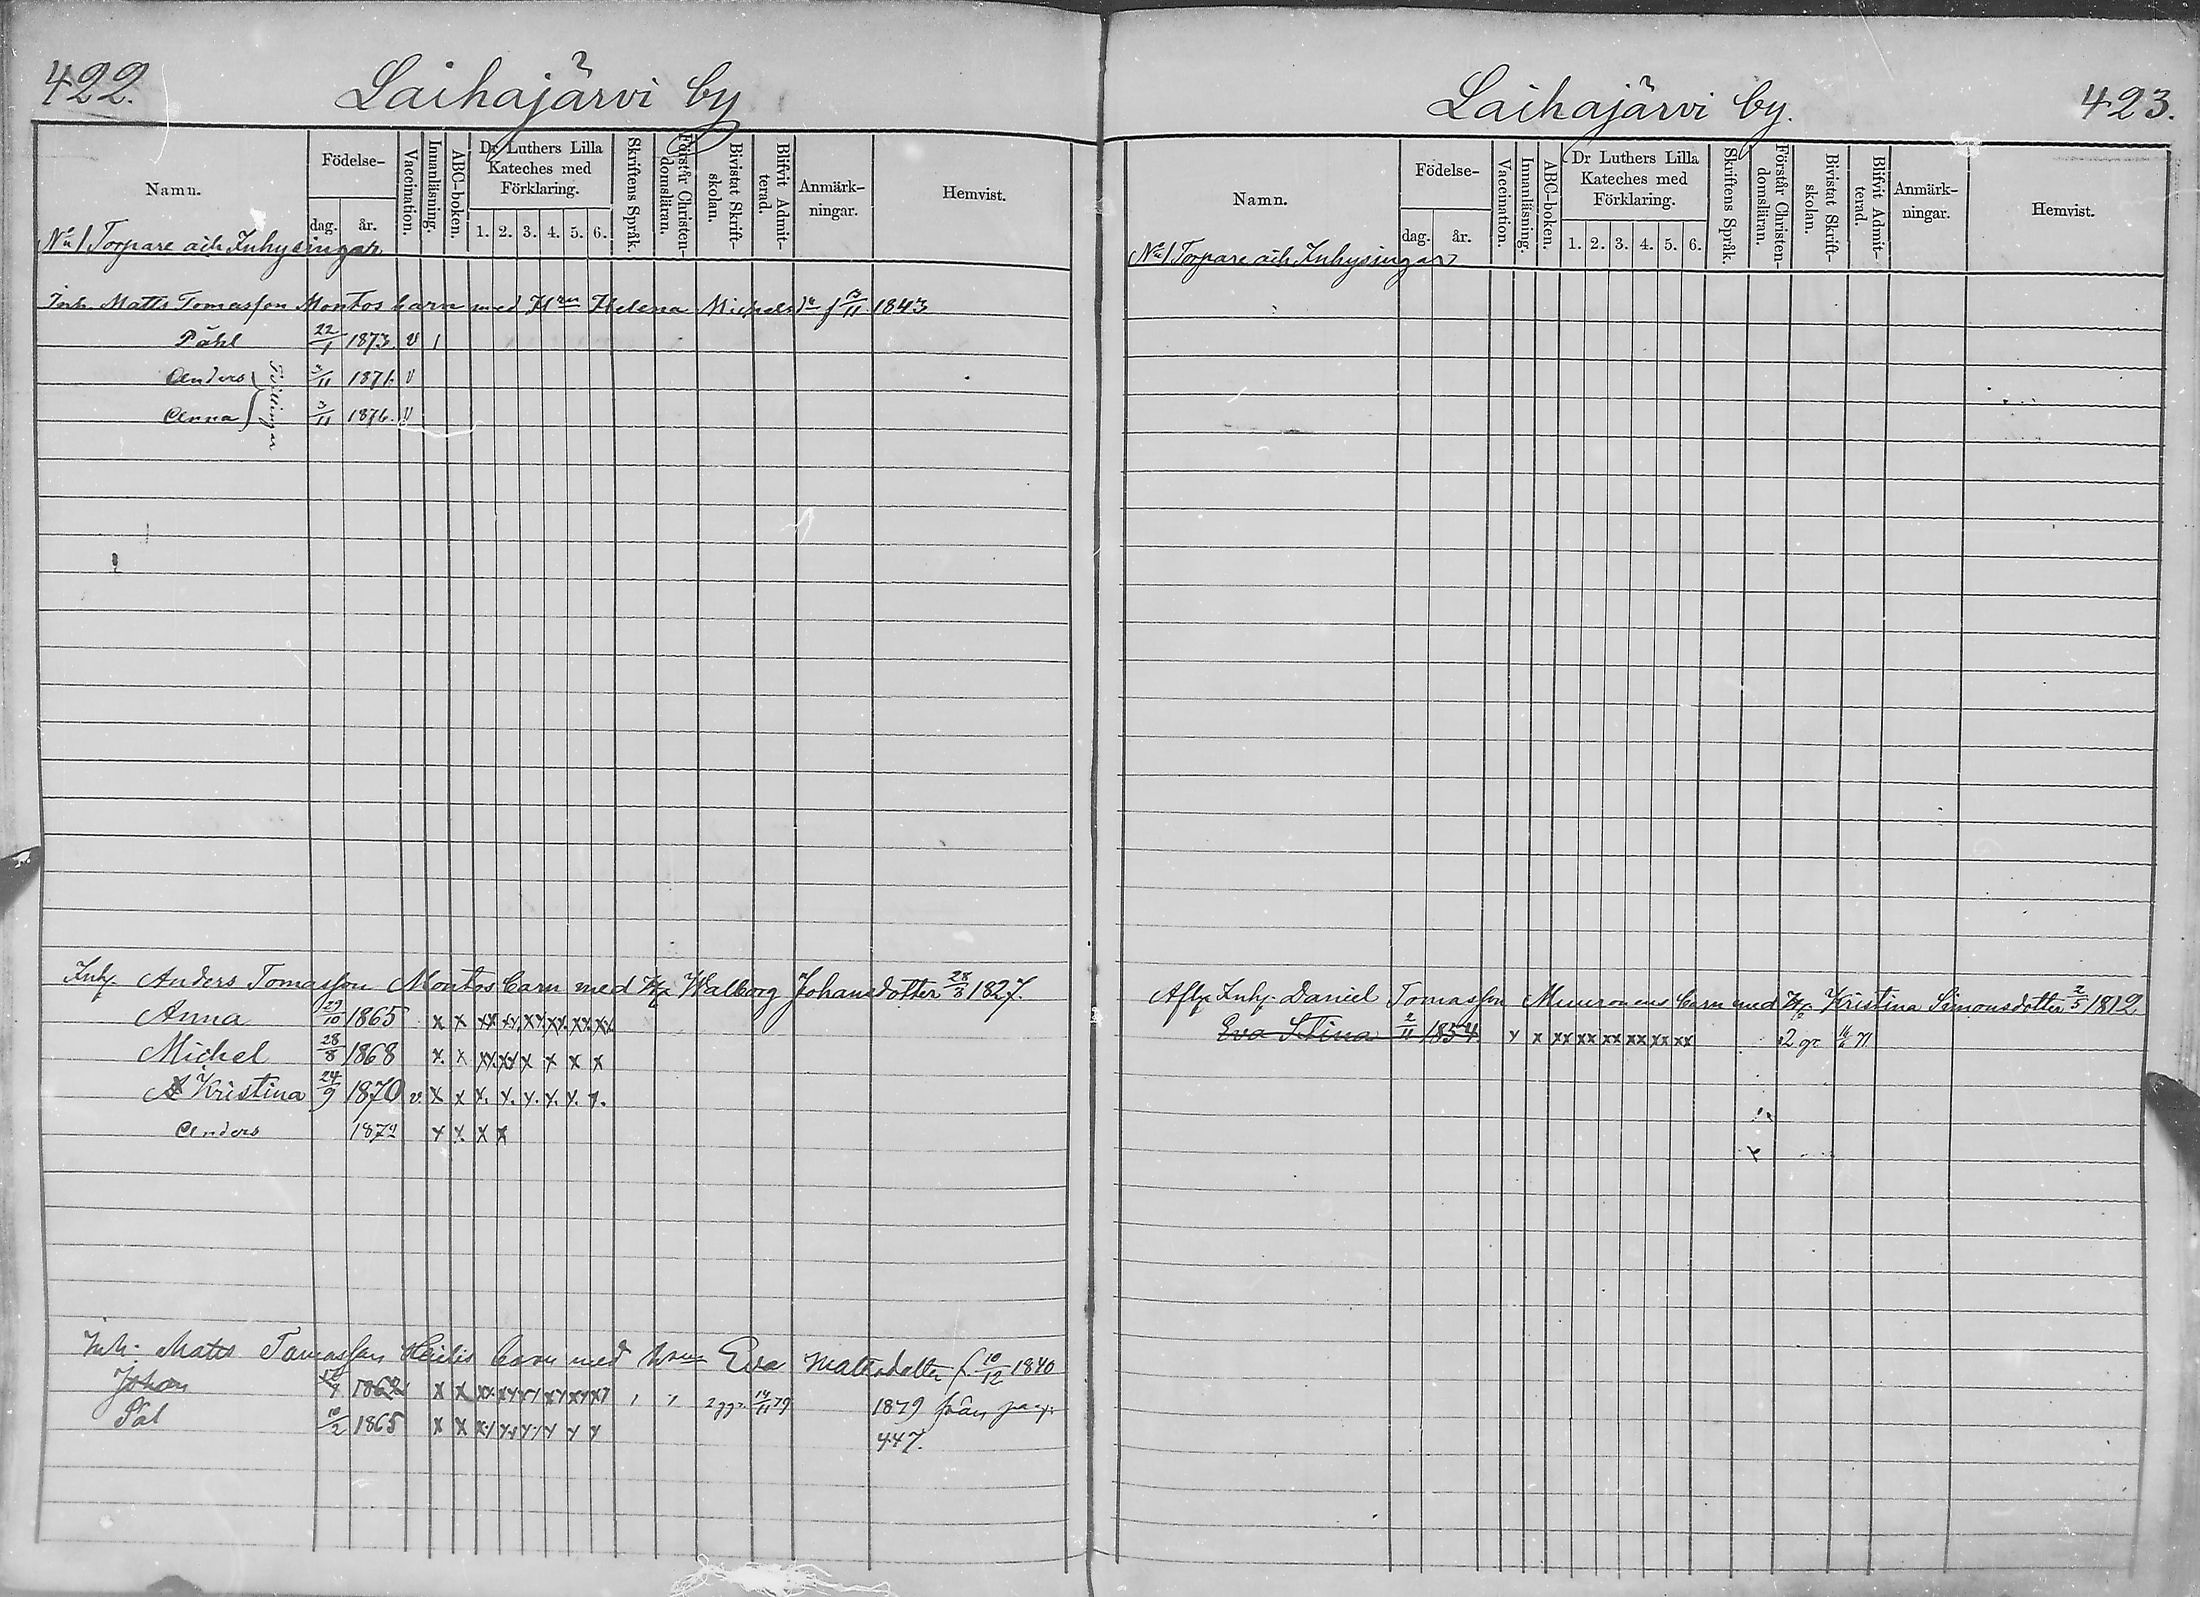 422.
Laihajärvi by
Namn.
Födelse-
dag.
år.
Vaccination.
Innanläsning.
ABC-boken.
Dr Luthers Lilla
Kateches med
Förklaring.
1. 2. 3. 4. 5. 6.
Skriftens Språk.
Förstår Christen-
domsläran.
Bivistat Skrift-
skolan.
Blifvit Admit-
terad.
Anmärk-
ningar.
Hemvist.
No 1 Torpare och Inhysingar
Inh. Matts Tomasson Montos barn med Hru Helena Michelsdr f 13/11 1843
Påhl 22/1 1873 v 1
Anders 3/11 1876. v
Anna 3/11 1876. v
Tvillingar
Inhy. Anders Tomasson Montos barn med Ha Walborg Johansdotter 28/3 1827.
Anna 29/10 1865 x x xx xx xx xx xx xx
Michel 28/8 1868 x x xx xx x x x x
Kristina 24/9 1870 v x x x. x. x. x. x. x.
Anders 1872 x x x x
Inh. Matts Tomasson barn med Hru Eva Mattsdotter f. 10/12 1840
Johan 1862 x x xx xx xx xx xx xx 2 ggr 14/11 79 1879 från pag.
Pål 10/2 1865 x x xx xx xx x x x 447.
423.
Laihajärvi by.
Namn.
Födelse-
dag.
år.
Vaccination.
Innanläsning.
ABC-boken.
Dr Luthers Lilla
Kateches med
Förklaring.
1. 2. 3. 4. 5. 6.
Skriftens Språk.
Förstår Christen-
domsläran.
Bivistat Skrift-
skolan.
Blifvit Admit-
terad.
Anmärk-
ningar.
Hemvist.
No 1 Torpare och Inhysingar
Afl. Inhy. Daniel Tomasson Muuronens barn med Ha Kristina Simonsdotter 2/5 1812
Eva Stina 2/11 1854 x x xx xx xx xx xx xx 2 gr 71